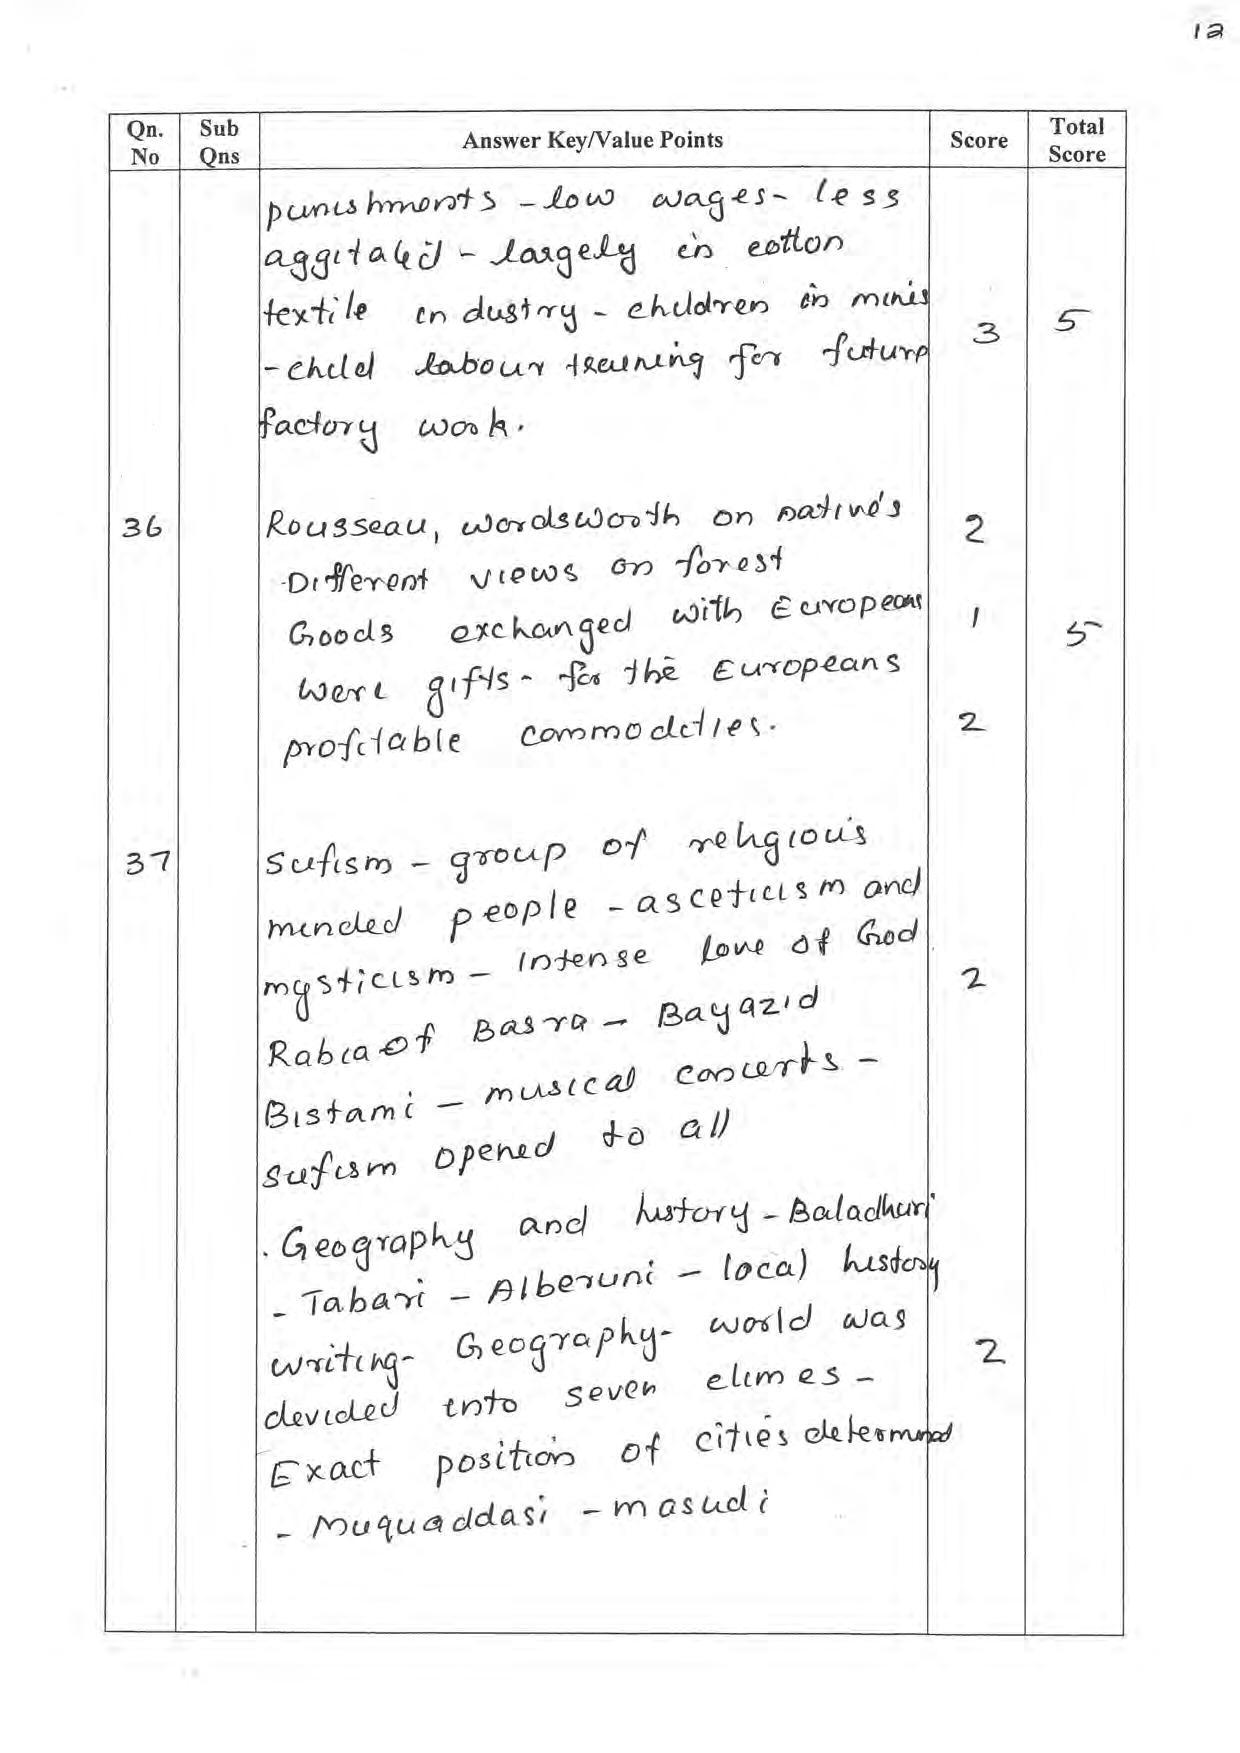 12
Qn. No | Sub Qns | Answer Key/Value Points | Score | Total Score
punishments - low wages - less
- largely in cotton
textile industry - children in mines | 3 | 5
- child labour training for future
factory work.
36 | Rousseau, wordsworth on native's | 2
Different views on forest
Goods exchanged with Europeans | 1 | 5
were gifts - for the Europeans
profitable commodities. | 2
37 | Sufism - group of religious
minded people - asceticism and
mysticism - Intense Love of God | 2
Rabia of Basra - Bayazid
Bistami - musical concerts -
sufism opened to all
. Geography and history - Baladhuri
- Tabari - Alberuni - local history
writing - Geography - world was | 2
devided into seven climes -
Exact position of cities determined
- Muquaddasi - masudi